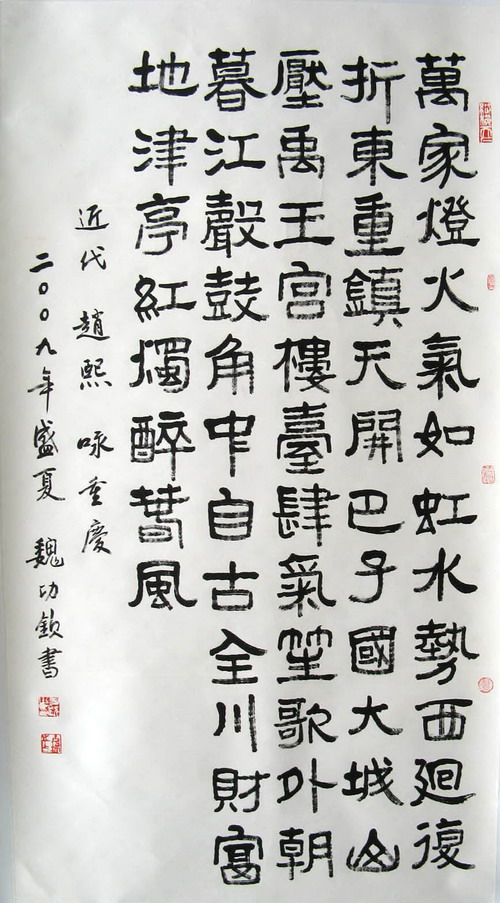 萬家燈火氣如虹水勢西廻復
折東重鎮天開巴子國大城山
壓禹王宮樓臺肆氣笙歌外朝
暮江聲鼓角中自古全川財富
地津亭紅燭醉春風
近代 趙熙 咏重慶
二〇〇九年盛夏 魏功欽書